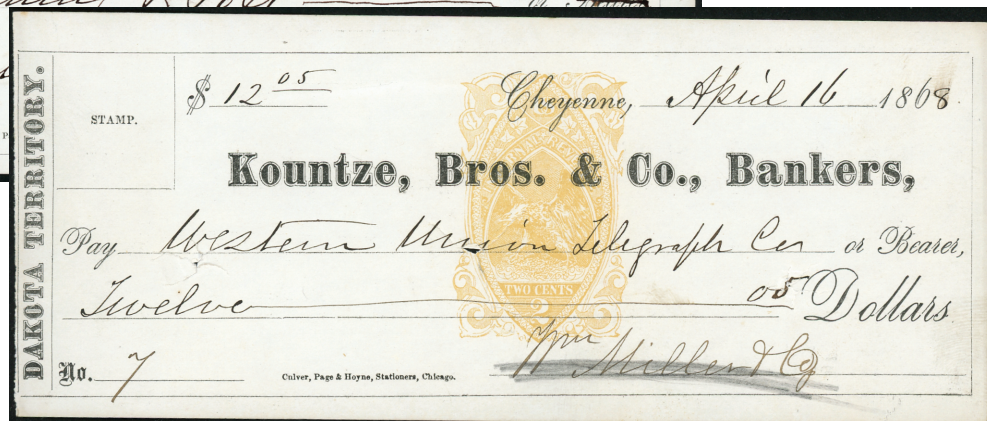 DAKOTA TERRITORY.
STAMP.
$ 12 05
Cheyenne, April 16 1868
Kountze, Bros. & Co., Bankers,
Pay Western Union Telegraph Co or Bearer,
Twelve 05 Dollars
TWO CENTS
2
No. 7
Culver, Page & Hoyne, Stationers, Chicago.
Wm Miller & Co